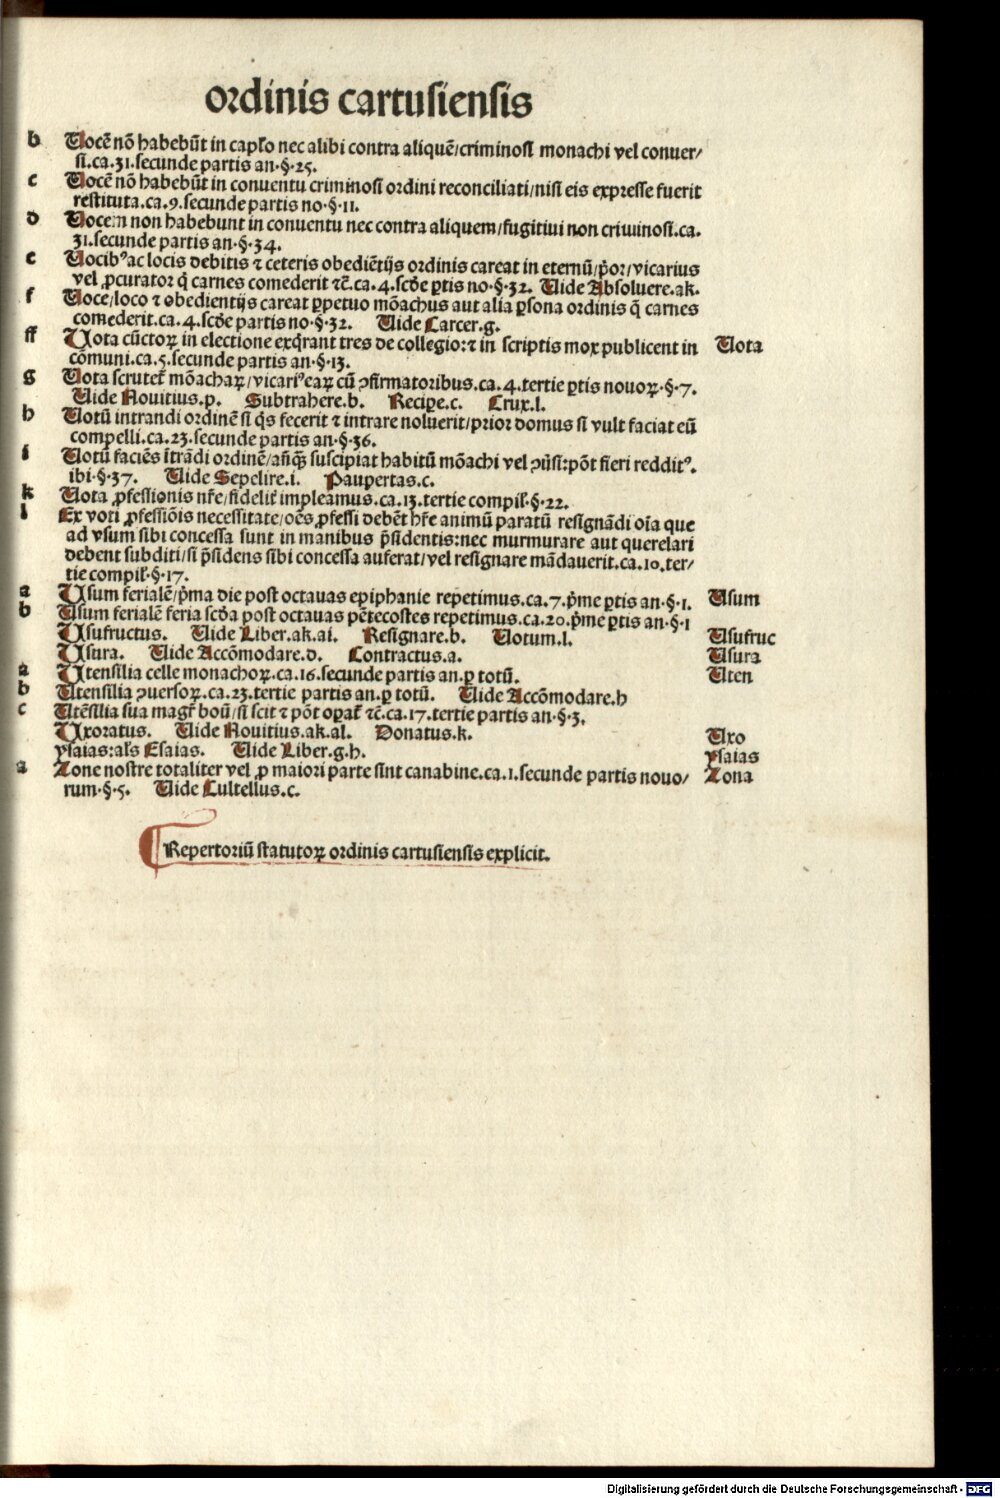 ordinis cartusiensis
b Uocē nō habebūt in capľo nec alibi contra aliquē/criminosi monachi vel conuer/
si.ca.31.secunde partis an.§.25.
c Uocē nō habebūt in conuentu criminosi ordini reconciliati/nisi eis expresse fuerit
restituta.ca.9.secunde partis no.§.11.
d Uocem non habebunt in conuentu nec contra aliquem/fugitiui non criminosi.ca.
31.secunde partis an.§.34.
e Uocibꝰ ac locis debitis ⁊ ceteris obediētijs ordinis careat in eternū/p̄or/vicarius
vel ꝓcurator q̄ carnes comederit ⁊c̄.ca.4.scďe ꝑtis no.§.32. Uide Absoluere.ak.
f Uoce/loco ⁊ obedientijs careat ꝑpetuo mōachus aut alia ꝑsona ordinis q̄ carnes
comederit.ca.4.scďe partis no.§.32. Uide Carcer.g.
ff Uota cūctoꝝ in electione exq̇rant tres de collegio:⁊ in scriptis mox publicent in Uota
cōmuni.ca.5.secunde partis an.§.13.
g Uota scrutet̄ mōachaꝝ/vicariꝰ eaꝝ cū ꝯfirmatoribus.ca.4.tertie ꝑtis nouoꝝ.§.7.
Uide Nouitius.p. Subtrahere.b. Recipe.c. Crux.l.
h Uotū intrandi ordinē si q̇s fecerit ⁊ intrare noluerit/prior domus si vult faciat eū
compelli.ca.23.secunde partis an.§.36.
i Uotū faciēs ītrādi ordinē/añq̄ꝫ suscipiat habitū mōachi vel ꝯūsi:pōt fieri redditꝰ.
ibi.§.37. Uide Sepelire.i. Paupertas.c.
k Uota ꝓfessionis nr̄e/fidelit̄ impleamus.ca.13.tertie compiľ.§.22.
l Ex voti ꝓfessiōis necessitate/oēs ꝓfessi debēt hr̄e animū paratū resignādi oīa que
ad vsum sibi concessa sunt in manibus p̄sidentis:nec murmurare aut querelari
debent subditi/si p̄sidens sibi concessa auferat/vel resignare mādauerit.ca.10.ter/
tie compiľ.§.17.
a Usum ferialē/p̄ma die post octauas epiphanie repetimus.ca.7.p̄me ꝑtis an.§.1. Usum
b Usum ferialē feria scďa post octauas pētecostes repetimus.ca.20.p̄me ꝑtis an.§.1
Usufructus. Uide Liber.ak.ai. Resignare.b. Uotum.l. Usufruc
Usura. Uide Accōmodare.d. Contractus.a. Usura
a Utensilia celle monachoꝝ.ca.16.secunde partis an.ꝑ totū. Uten
b Utensilia ꝯuersoꝝ.ca.23.tertie partis an.ꝑ totū. Uide Accōmodare.h
c Utēsilia sua magr̄ boū/si scit ⁊ pōt oꝑat̄ ⁊c̄.ca.17.tertie partis an.§.3.
Uxoratus. Uide Nouitius.ak.al. Donatus.k. Uxo
ysaias:aľs Esaias. Uide Liber.g.h. ysaias
a Zone nostre totaliter vel ꝓ maiori parte sint canabine.ca.1.secunde partis nouo/ Zona
rum.§.5. Uide Cultellus.c.
Repertoriū statutoꝝ ordinis cartusiensis explicit.
Digitalisierung gefördert durch die Deutsche Forschungsgemeinschaft - DFG